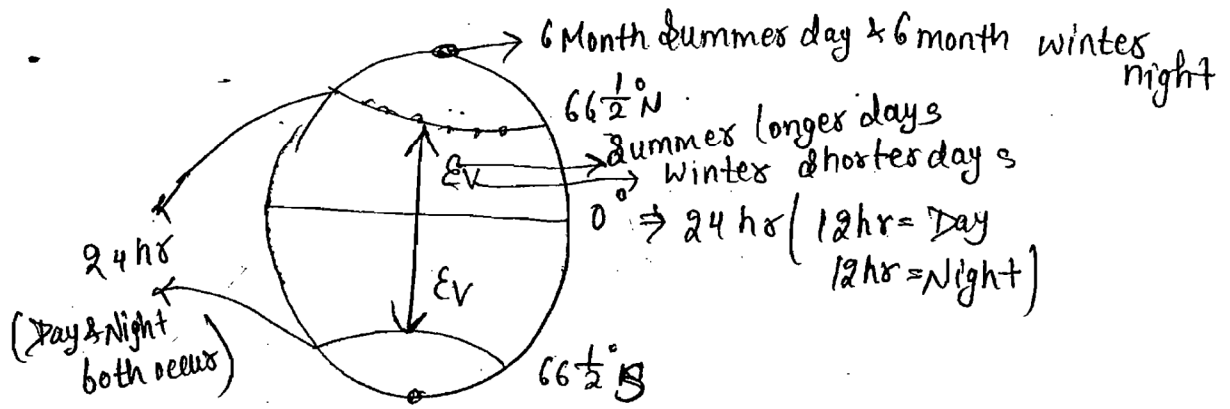 6 Month Summer day & 6 month winter
night
66 1/2° N
Summer longer days
Winter shorter days
EV
0° ⇒ 24 hr ( 12hr = Day
12hr = Night)
24 hr
(Day & Night
both occur)
EV
66 1/2° S